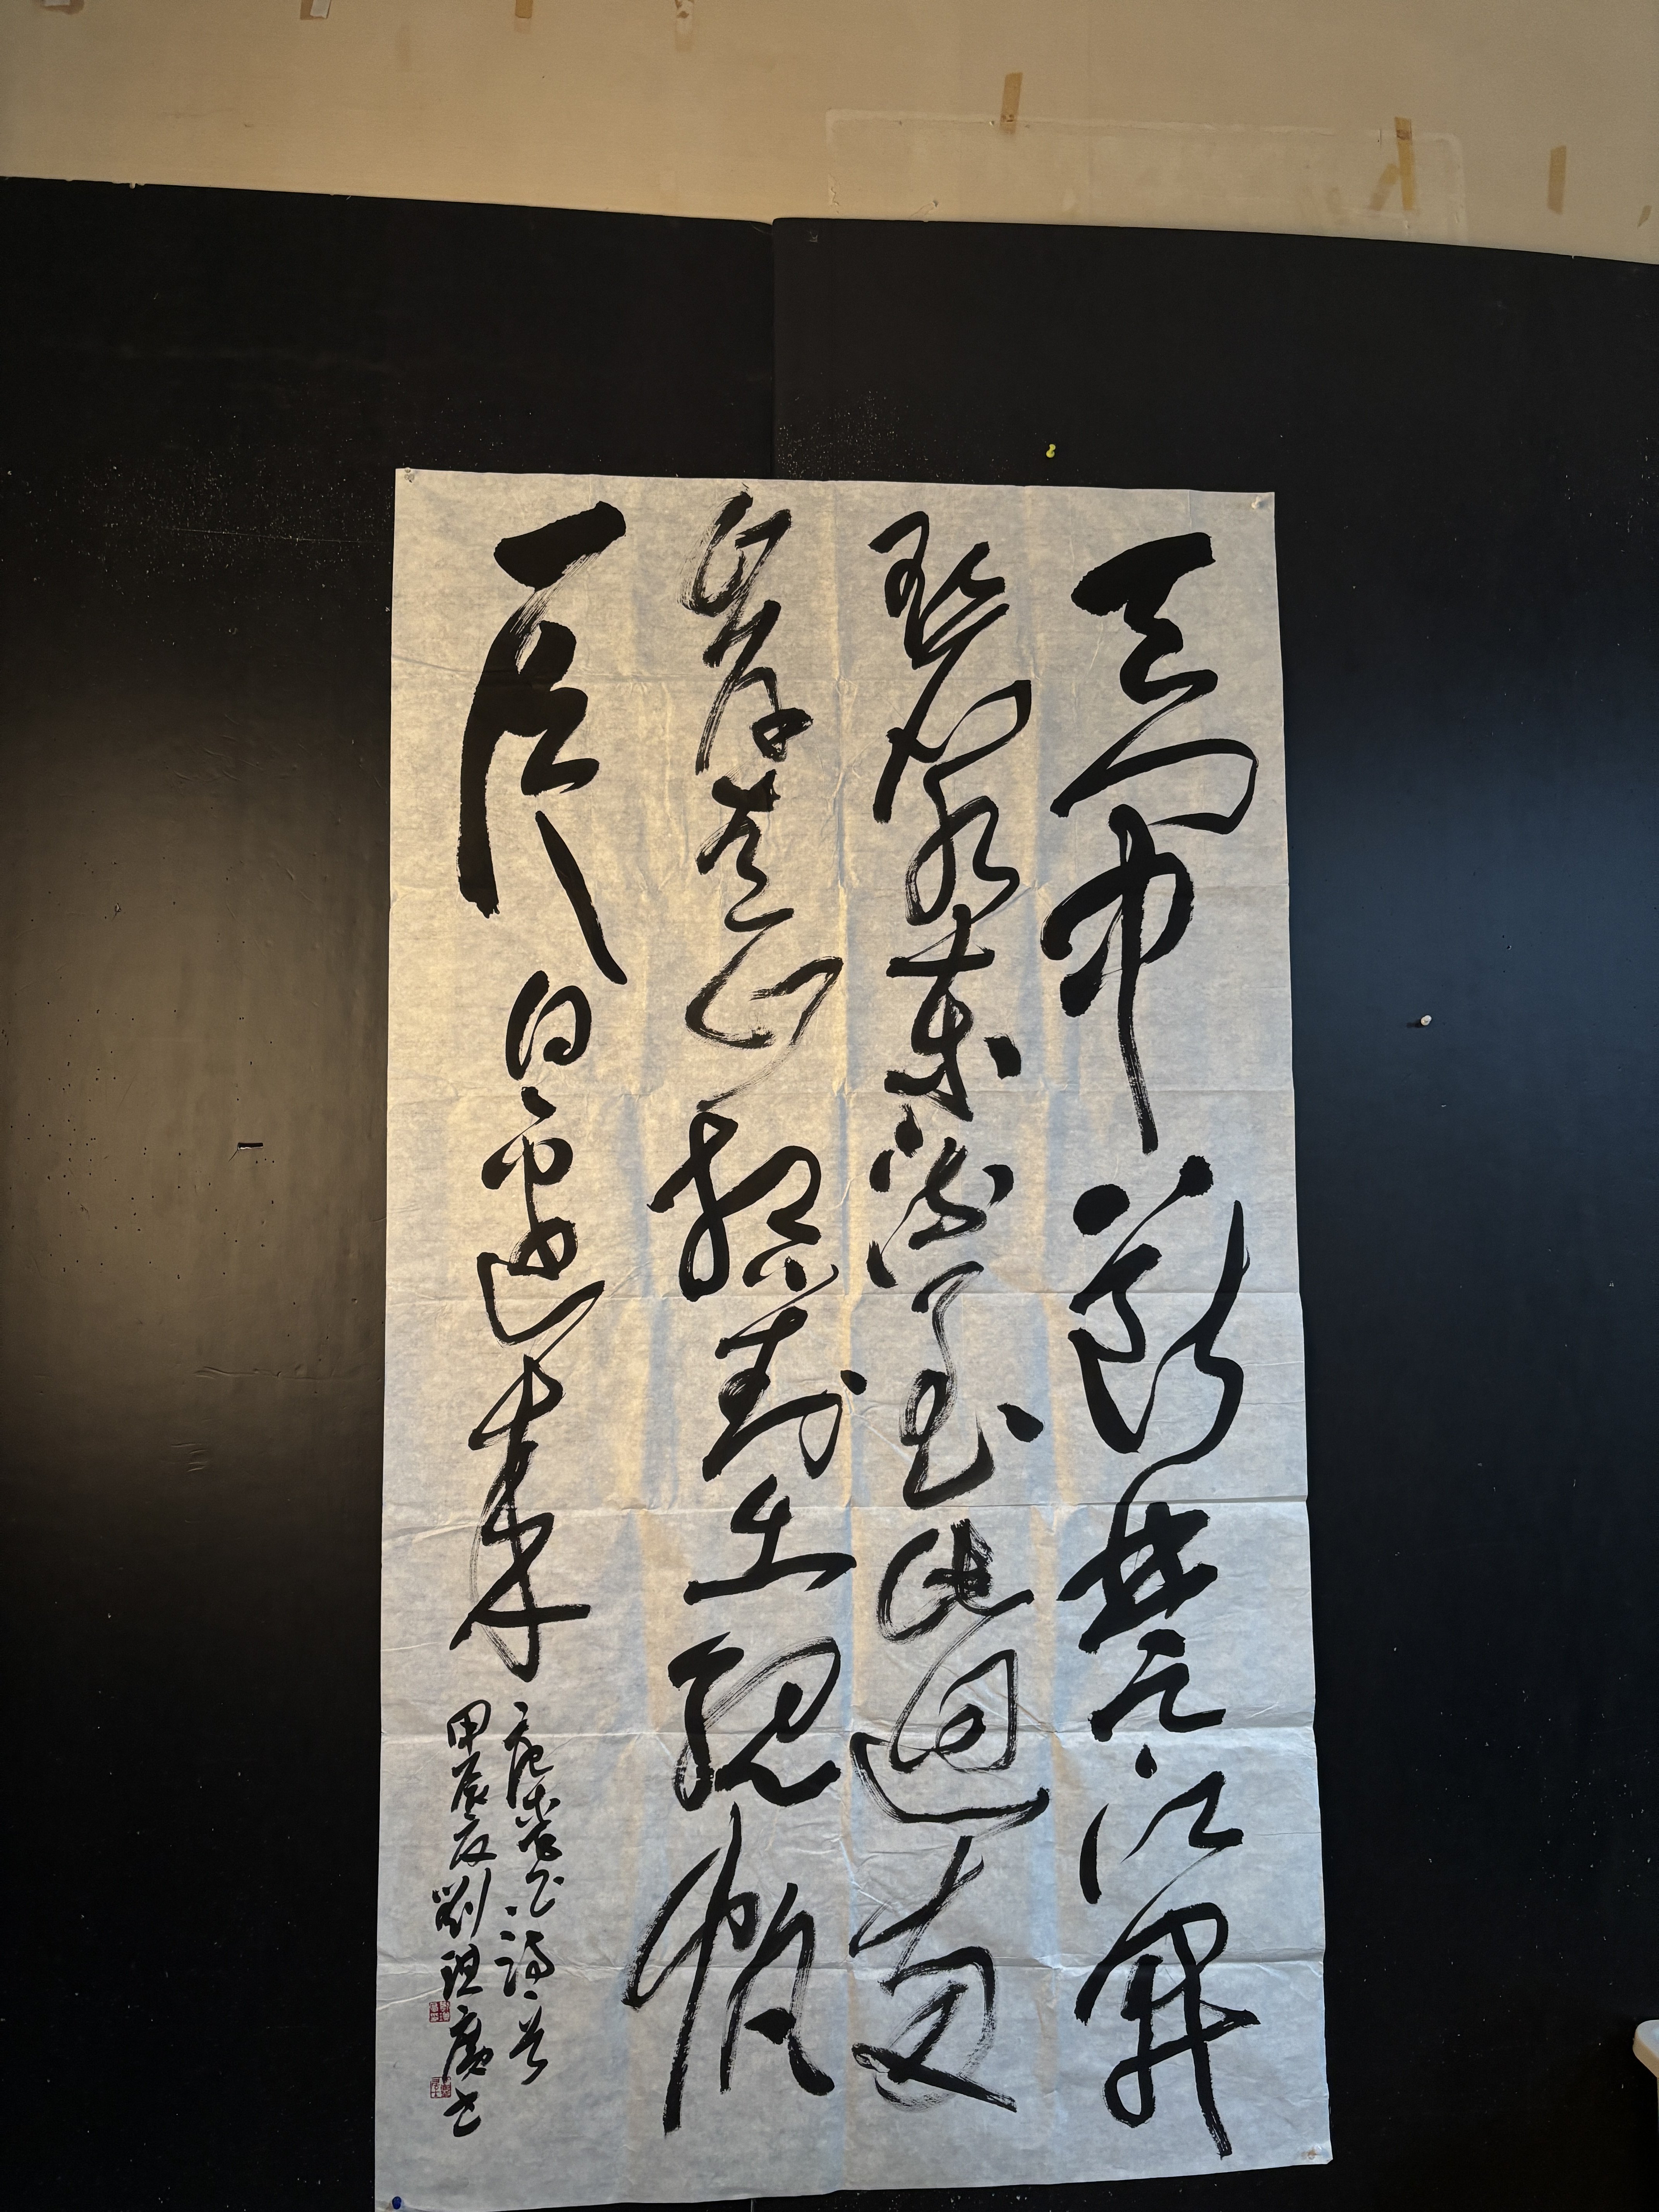 天門中斷楚江開
碧水東流至此迴兩
岸青山相對出孤帆
一片日邊來
唐李白詩一首
甲辰夏劉廣書